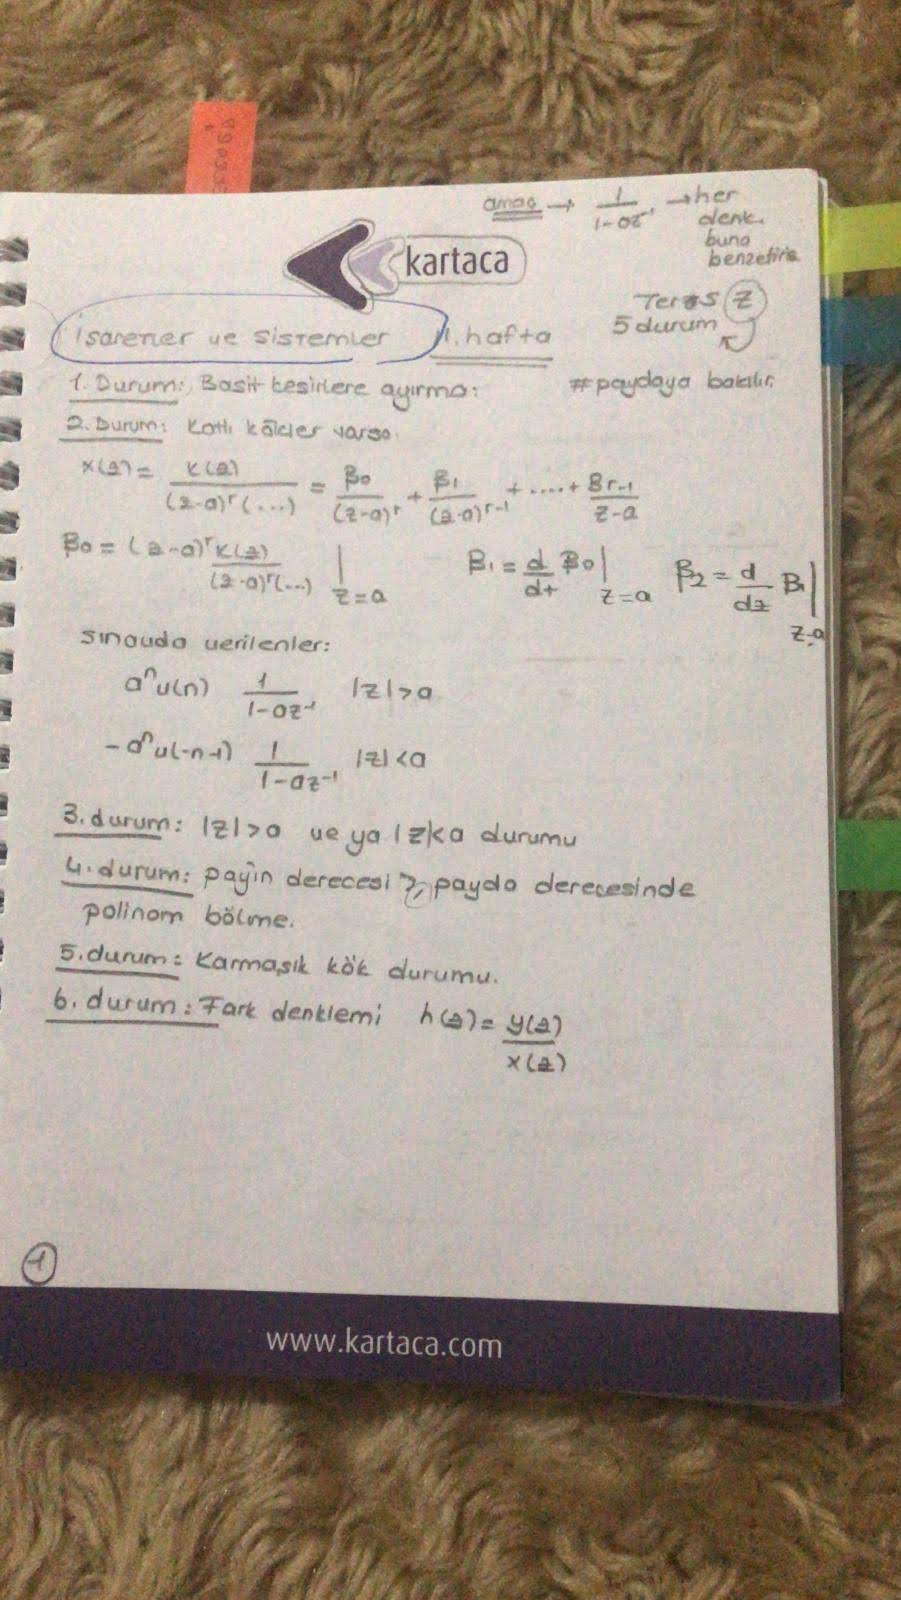 amaç → 1/(1-az⁻¹) → her
denk.
buna
benzetiris
kartaca
Ters Z
5 durum
işaretler ve sistemler 11. hafta
1. Durum: Basit kesirlere ayırma:
#paydaya bakılır.
2. Durum: Katlı kökler varsa:
X(z) = K(z)/((z-a)ʳ(...)) = β₀/(z-a)ʳ + β₁/(z-a)ʳ⁻¹ + .... + βr-1/(z-a)
β₀ = (z-a)ʳ K(z)/((z-a)ʳ(...)) | z=a
β₁ = d/dt β₀ | z=a
β₂ = d/dz β₁ | z=a
sınavda verilenler:
aⁿu(n) 1/(1-az⁻¹) |z|>a
-aⁿu(-n-1) 1/(1-az⁻¹) |z|<a
3. durum: |z|>a ve ya |z|<a durumu
4. durum: payın derecesi ≥ payda derecesinde
polinom bölme.
5. durum: Karmaşık kök durumu.
6. durum: Fark denklemi h(z) = y(z)/x(z)
1
www.kartaca.com